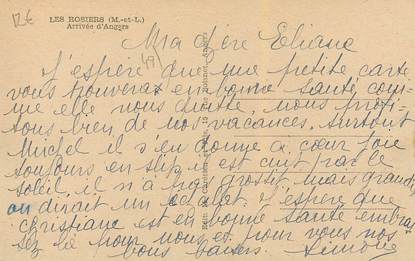 12€
LES ROSIERS (M.-et-L.)
Arrivée d'Angers
49
Ma chère Eliane
J'espère que une petite carte
vous trouveras en bonne santé com-
me elle nous quitte, nous profi-
tons bien de nos vacances, surtout
Michel il s'en donne a cœur joie
toujours en slip il est cuit par le
soleil, il n'a pas grossit mais grandi
on dirait un   . J'espère que
christiane est en bonne santé embras
sez le pour nous et pour vous nos
bons baisers. Simone